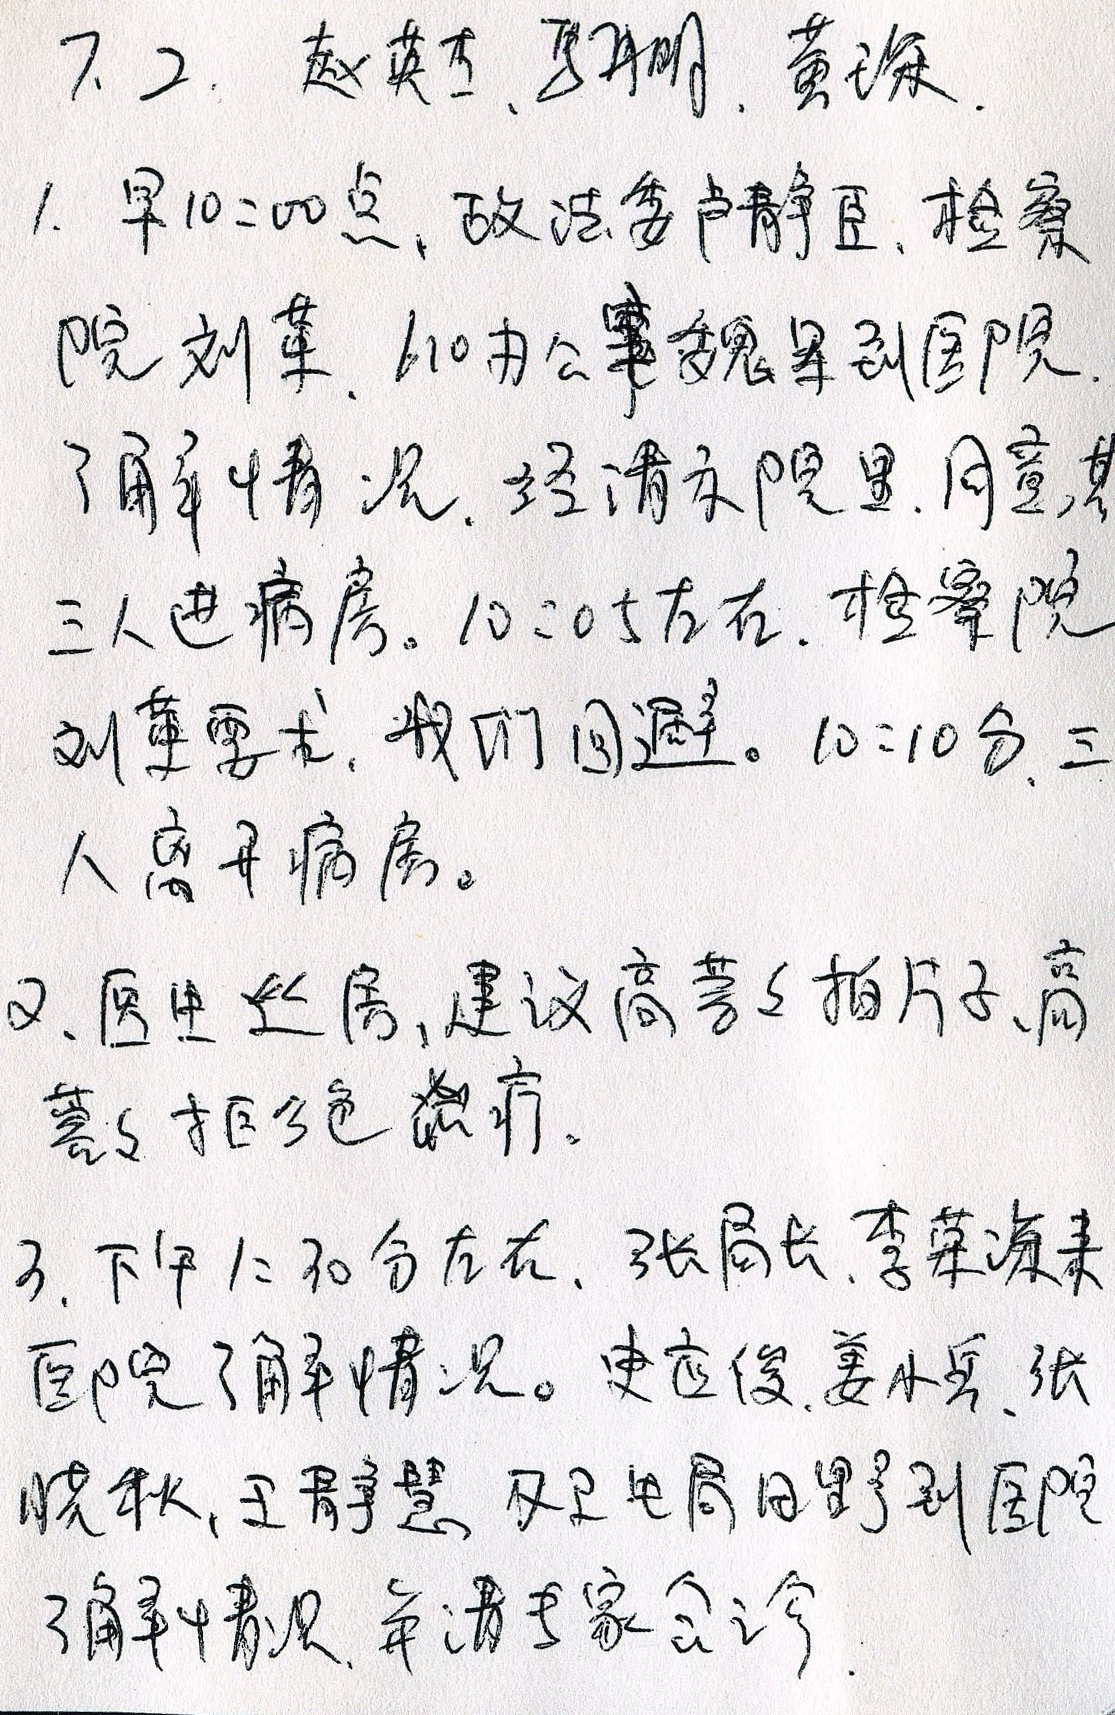 7.2. 赵英杰、马冉明、黄琛.
1. 早10:00点,政法委卢静臣、检察
院刘莱、610办公室魏星到医院,
了解情况,经请示院里,同意其
三人进病房。10:05左右,检察院
刘莱要求,我们回避。10:10分,三
人离开病房。
2、医生查房,建议高蓉蓉拍片子,高
蓉蓉拒绝治疗.
3. 下午1:30分左右,张局长、李荣源来
医院了解情况。史立俊、姜小兵、张
晓秋,王静慧及卫生局田野到医院
了解情况,并请专家会诊.